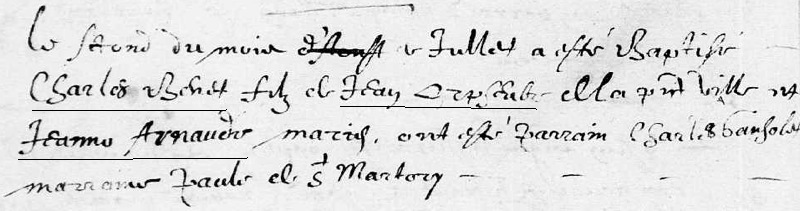 Le second du mois d'aoust de Jullet a esté Baptisé
Charles Benet filz de Jean de la pnt ville et
Jeanne Arnaude mariés, ont esté parrain Charles
marraine Paule de St Martory